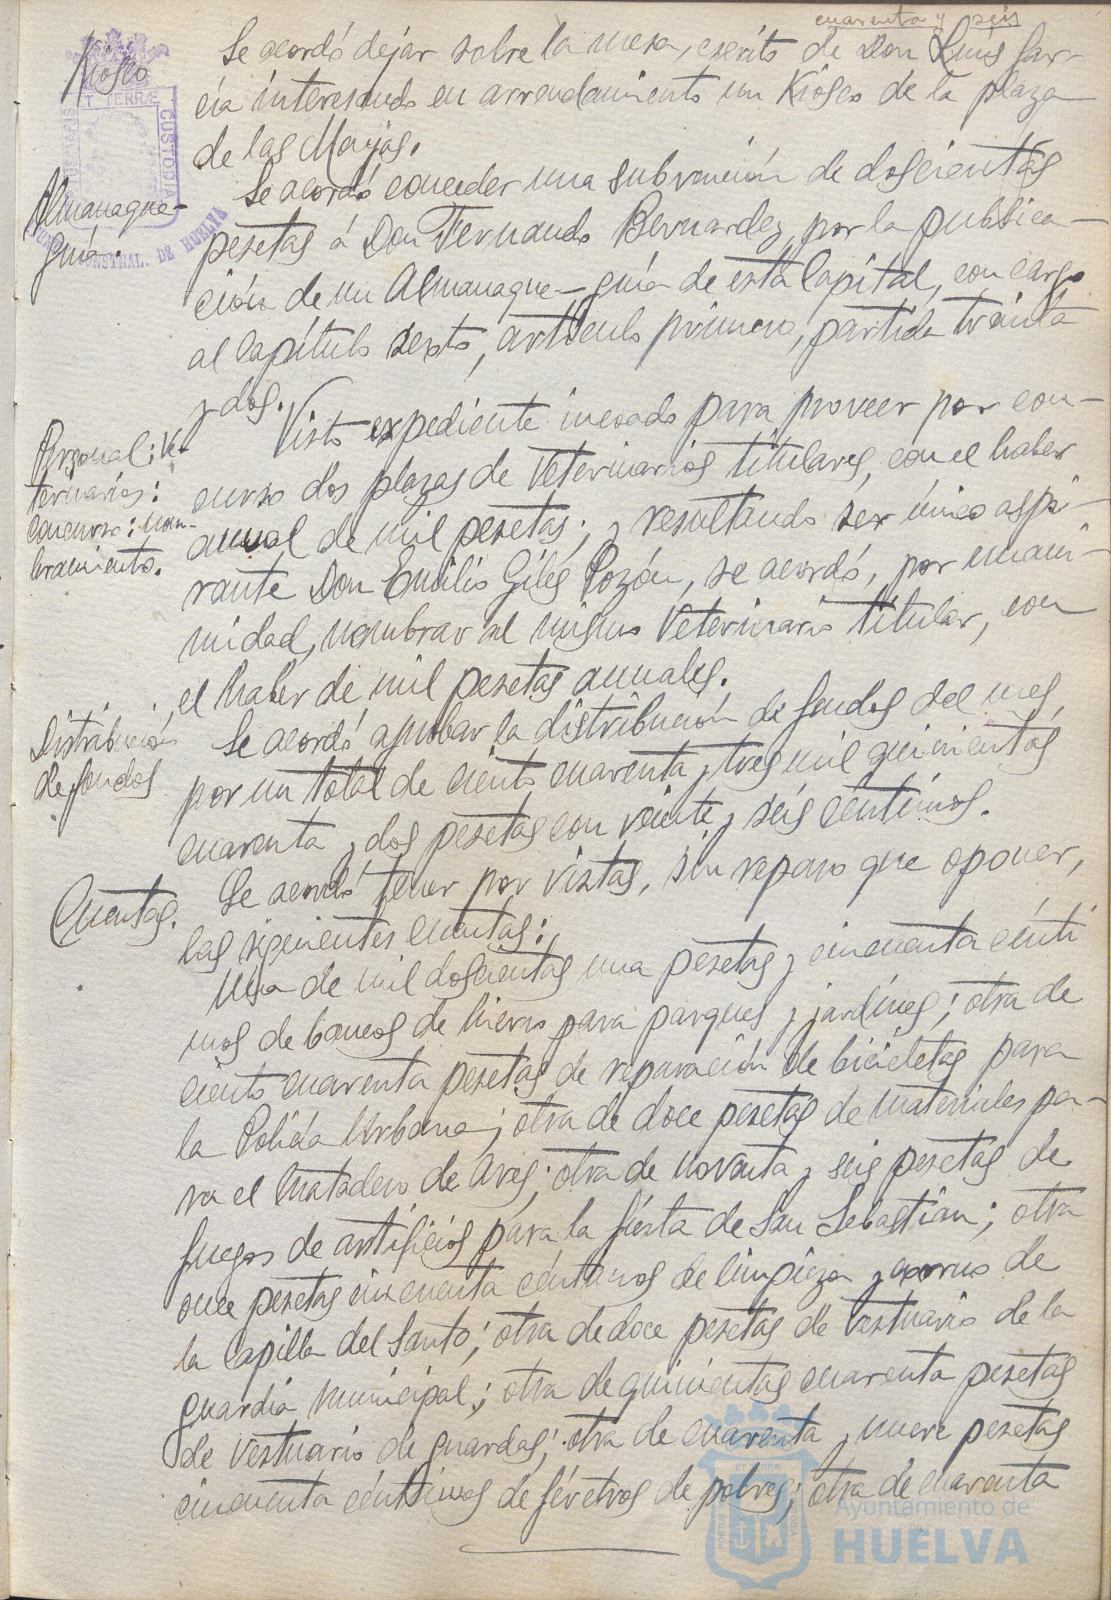 cuarenta y seis
Kiosco
Se acordó dejar sobre la mesa, escrito de Don Luís Gar-
cía interesando en arrendamiento un Kiosco de la plaza
de las Monjas.
Almanaque-
guía.
Se acordó conceder una subvención de doscientas
pesetas á Don Fernando Bernardez, por la publica-
ción de un Almanaque-guía de esta Capital, con cargo
al Capítulo sexto, artículo primero, partida treinta
y dos.
Personal; Ve-
terinarios:
concurso: nom-
bramiento.
Visto expediente incoado para proveer por con-
curso dos plazas de Veterinarios titulares, con el haber
anual de mil pesetas; y resultando ser único aspi-
rante Don Emilio Gíles Pozón, se acordó, por unani-
midad, nombrar al mismo Veterinario titular, con
el haber de mil pesetas anuales.
Distribución
de fondos
Se acordó aprobar la distribución de fondos del mes,
por un total de ciento cuarenta y tres mil quinientas
cuarenta y dos pesetas con veinte y seis céntimos.
Cuentas.
Se acordó tener por vistas, sin reparo que oponer,
las siguientes cuentas:
Una de mil doscientas una pesetas y cincuenta cénti
mos de bancos de hierro para parques y jardínes; otra de
ciento cuarenta pesetas de reparación de bicicletas para
la Policía Urbana; otra de doce pesetas de materiales pa-
ra el Matadero de Aves; otra de noventa y seis pesetas de
fuegos de artificios para la fiesta de San Sebastián; otra
once pesetas cincuenta céntimos de limpieza y exorno de
la Capilla del Santo; otra de doce pesetas de vestuario de la
guardia municipal; otra de quinientas cuarenta pesetas
de vestuario de guardas; otra de cuarenta y nueve pesetas
cincuenta céntimos de féretros de pobres; otra de cuarenta
Ayuntamiento de
HUELVA